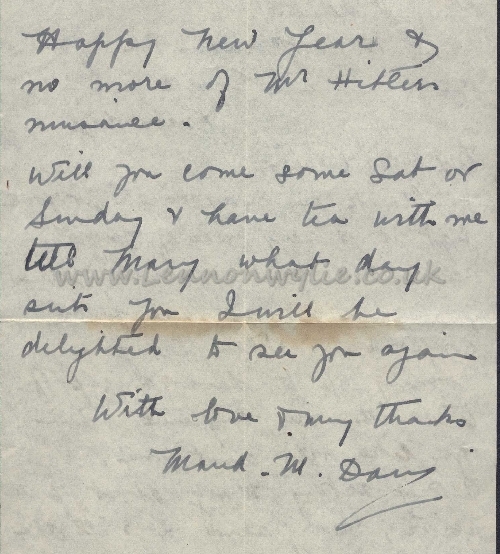 Happy New Year &
no more of Mr Hitlers
nuisance.
Will you come some Sat or
Sunday & have tea with me
tell Mary what day
suts you I will be
delighted to see you again
With love & my thanks
Maud. M. Davis
www.Lennonwylie.co.uk